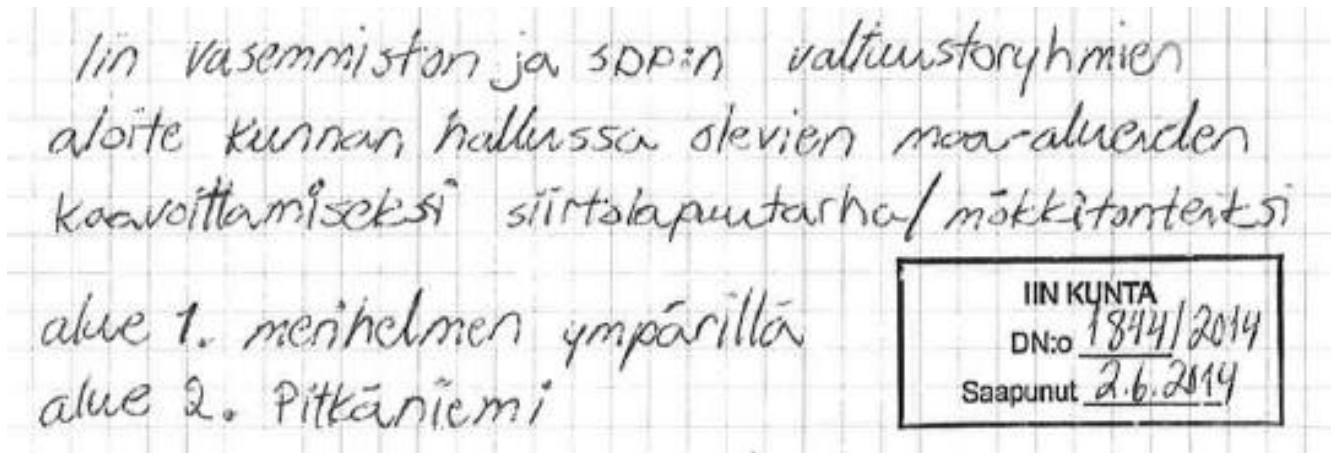 Iin vasemmiston ja SDP:n valtuustoryhmien
aloite kunnan hallussa olevien maa-alueiden
kaavoittamiseksi siirtolapuutarha/mökkitonteiksi
alue 1. merihelmen ympärillä
alue 2. Pitkäniemi
IIN KUNTA
DN:o 1844/2014
Saapunut 2.6.2014